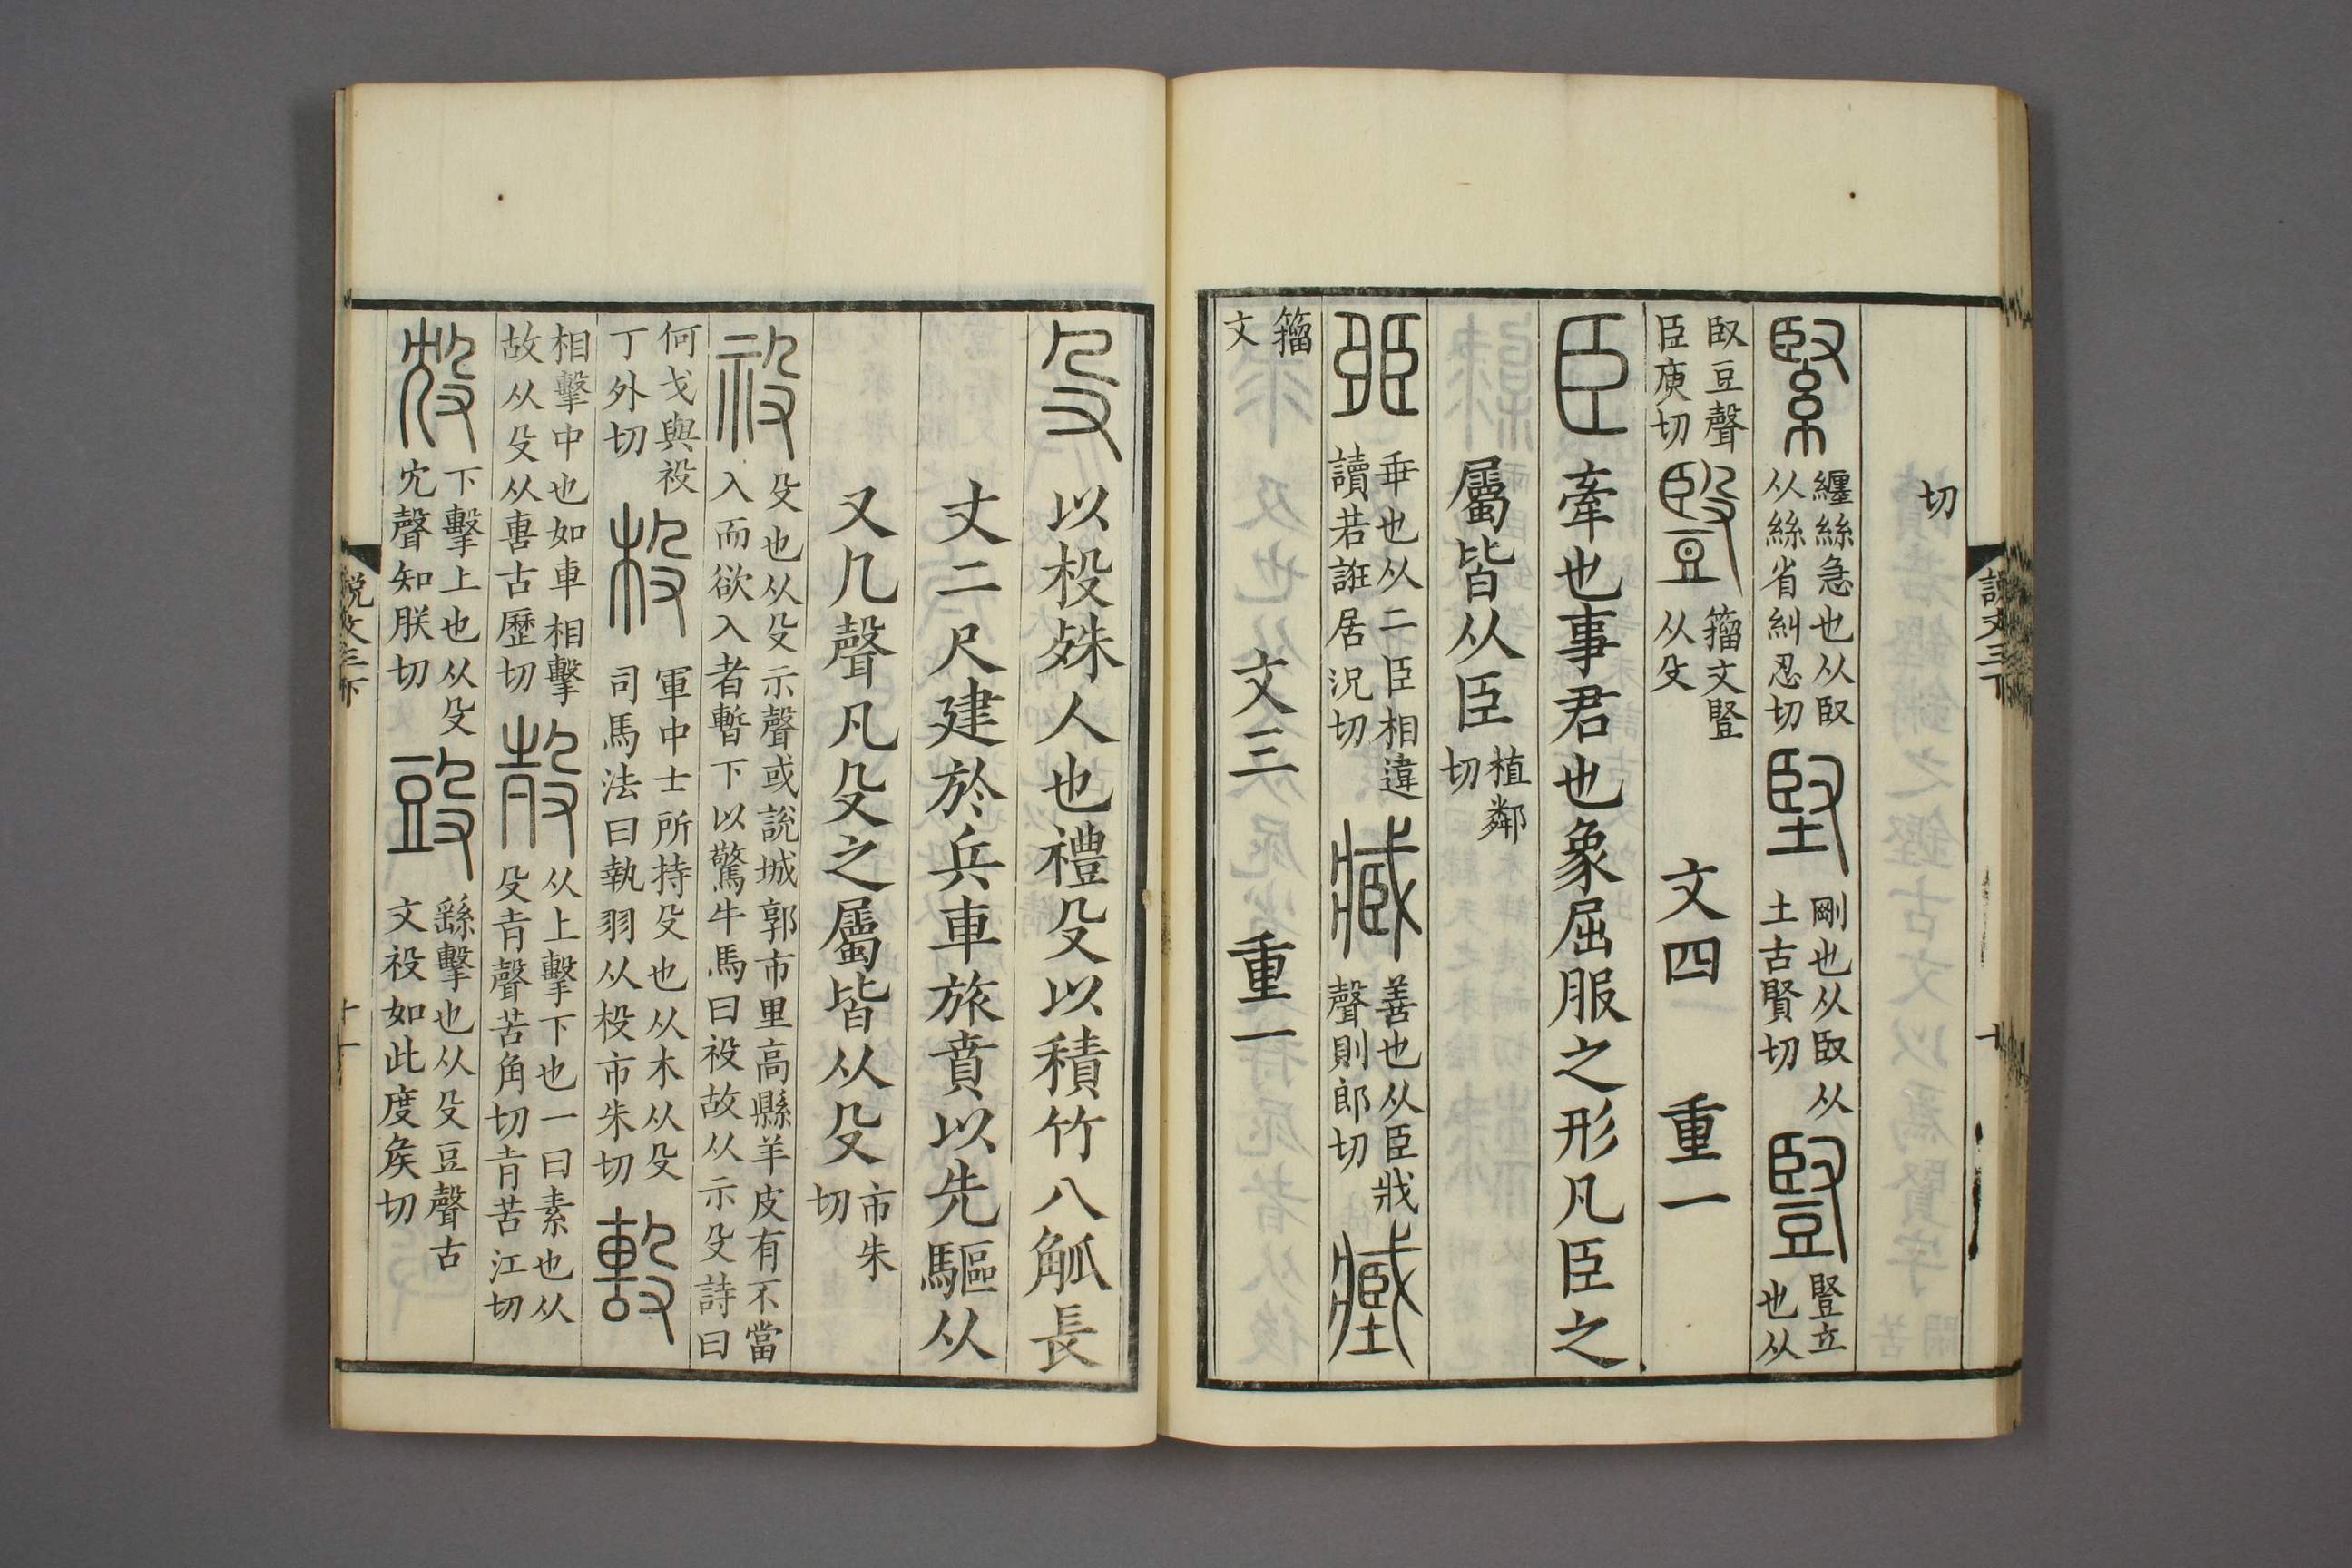 説文三下 十
切
緊 纏絲急也从臤从絲省糾忍切 堅 剛也从臤从土古賢切 豎 豎立也从
臤豆聲臣庾切 𧯫 籀文豎从殳 文四 重一
臣 牽也事君也象屈服之形凡臣之
屬皆从臣 植鄰切
𦣩 乖也从二臣相違讀若誑居況切 臧 善也从臣戕聲則郎切 𡒉
籀文 文三 重一
殳 以杸殊人也禮殳以積竹八觚長
丈二尺建於兵車旅賁以先驅从
又几聲凡殳之屬皆从殳 市朱切
祋 殳也从殳示聲或說城郭市里高縣羊皮有不當入而欲入者暫下以驚牛馬曰祋故从示殳詩曰
何戈與祋丁外切 杸 軍中士所持殳也从木从殳司馬法曰執羽从杸市朱切 毄
相擊中也如車相擊故从殳从軎古歷切 𣪊 从上擊下也一曰素也从殳𡉉聲苦角切𡉉苦江切
㱽 下擊上也从殳冘聲知朕切 㪷 繇擊也从殳豆聲古文祋如此度矦切
說文三下 十一